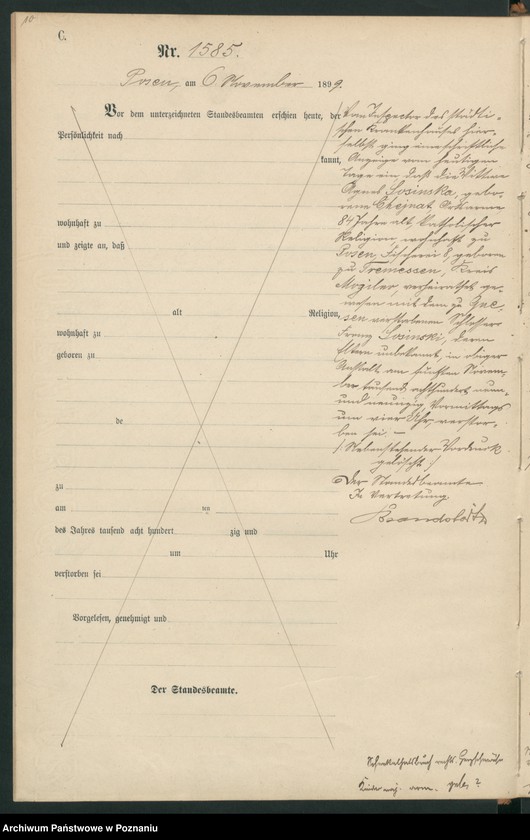 10
C.
Nr. 1585.
Posen, am 6 November 1899.
Vor dem unterzeichneten Standesbeamten erschien heute, der
Persönlichkeit nach
kannt,
wohnhaft zu
und zeigte an, daß
alt Religion,
wohnhaft zu
geboren zu
de
zu
am un
des Jahres tausend acht hundert zig und
um Uhr
verstorben sei
Vorgelesen, genehmigt und
Der Standesbeamte.
Vom Inspector des städti-
schen Krankenhauses hier-
selbst ging eine schriftliche
Anzeige vom heutigen
Tage ein, daß die Wittwe
Agnes Sosinska, gebo-
rene Chejnat,
84 Jahre alt, katholischer
Religion, wohnhaft zu
Posen, Fischerei 8, geboren
zu Tremessen, Kreis
Mogilno, verheirathet ge-
wesen mit dem zu Gne-
sen verstorbenen Schlosser
Franz Sosinski, deren
Eltern unbekannt, in obiger
Anstalt am fünften Novem-
ber tausend achthundert neun-
und neunzig, Vormittags
um vier Uhr, verstor-
ben sei. —
/ Nebenstehender Vordruck
gelöscht /
Der Standesbeamte
In Vertretung
rechts.
arm.
Archiwum Państwowe w Poznaniu